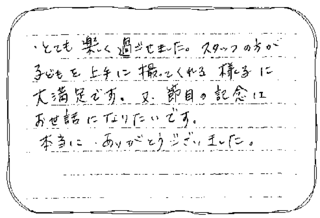 ・とても楽しく過ごせました。スタッフの方が
子どもを上手に撮ってくれる様子に
大満足です。又、節目の記念に
お世話になりたいです。
本当に、ありがとうございました。